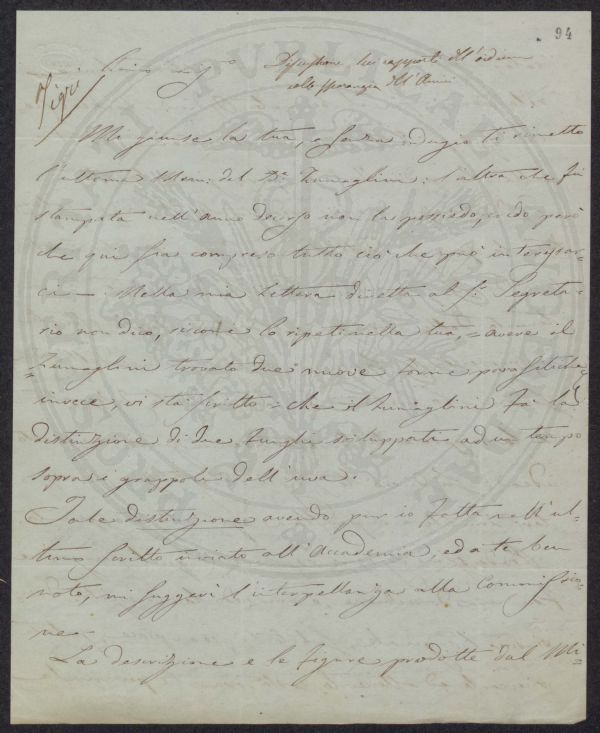 94
Tigri
Mi giunse la tua, e senza indugio ti rimetto
l'ultima Mem: del Dr. Zumaglini: l'altra che fu
stampata nell'anno decorso non la possiedo, credo però
che qui sia compreso tutto ciò che può interessar=
ci — Nella mia lettera diretta al Sr. Segreta=
rio non dico, siccome lo ripeti nella tua, = avere il
Zumaglini trovato due nuove forme parassitiche =
invece, vi sta scritto = che il Zumaglini fa la
distinzione di due funghi sviluppati ad un tempo
sopra i grappoli dell'uva.
Tale distinzione avendo pur io fatta nell'ul=
timo scritto inviato all'Accademia, ed a te ben
noto, mi suggerì l'interpellanza alla Commissio=
ne —
La descrizione e le figure prodotte dal Mi=